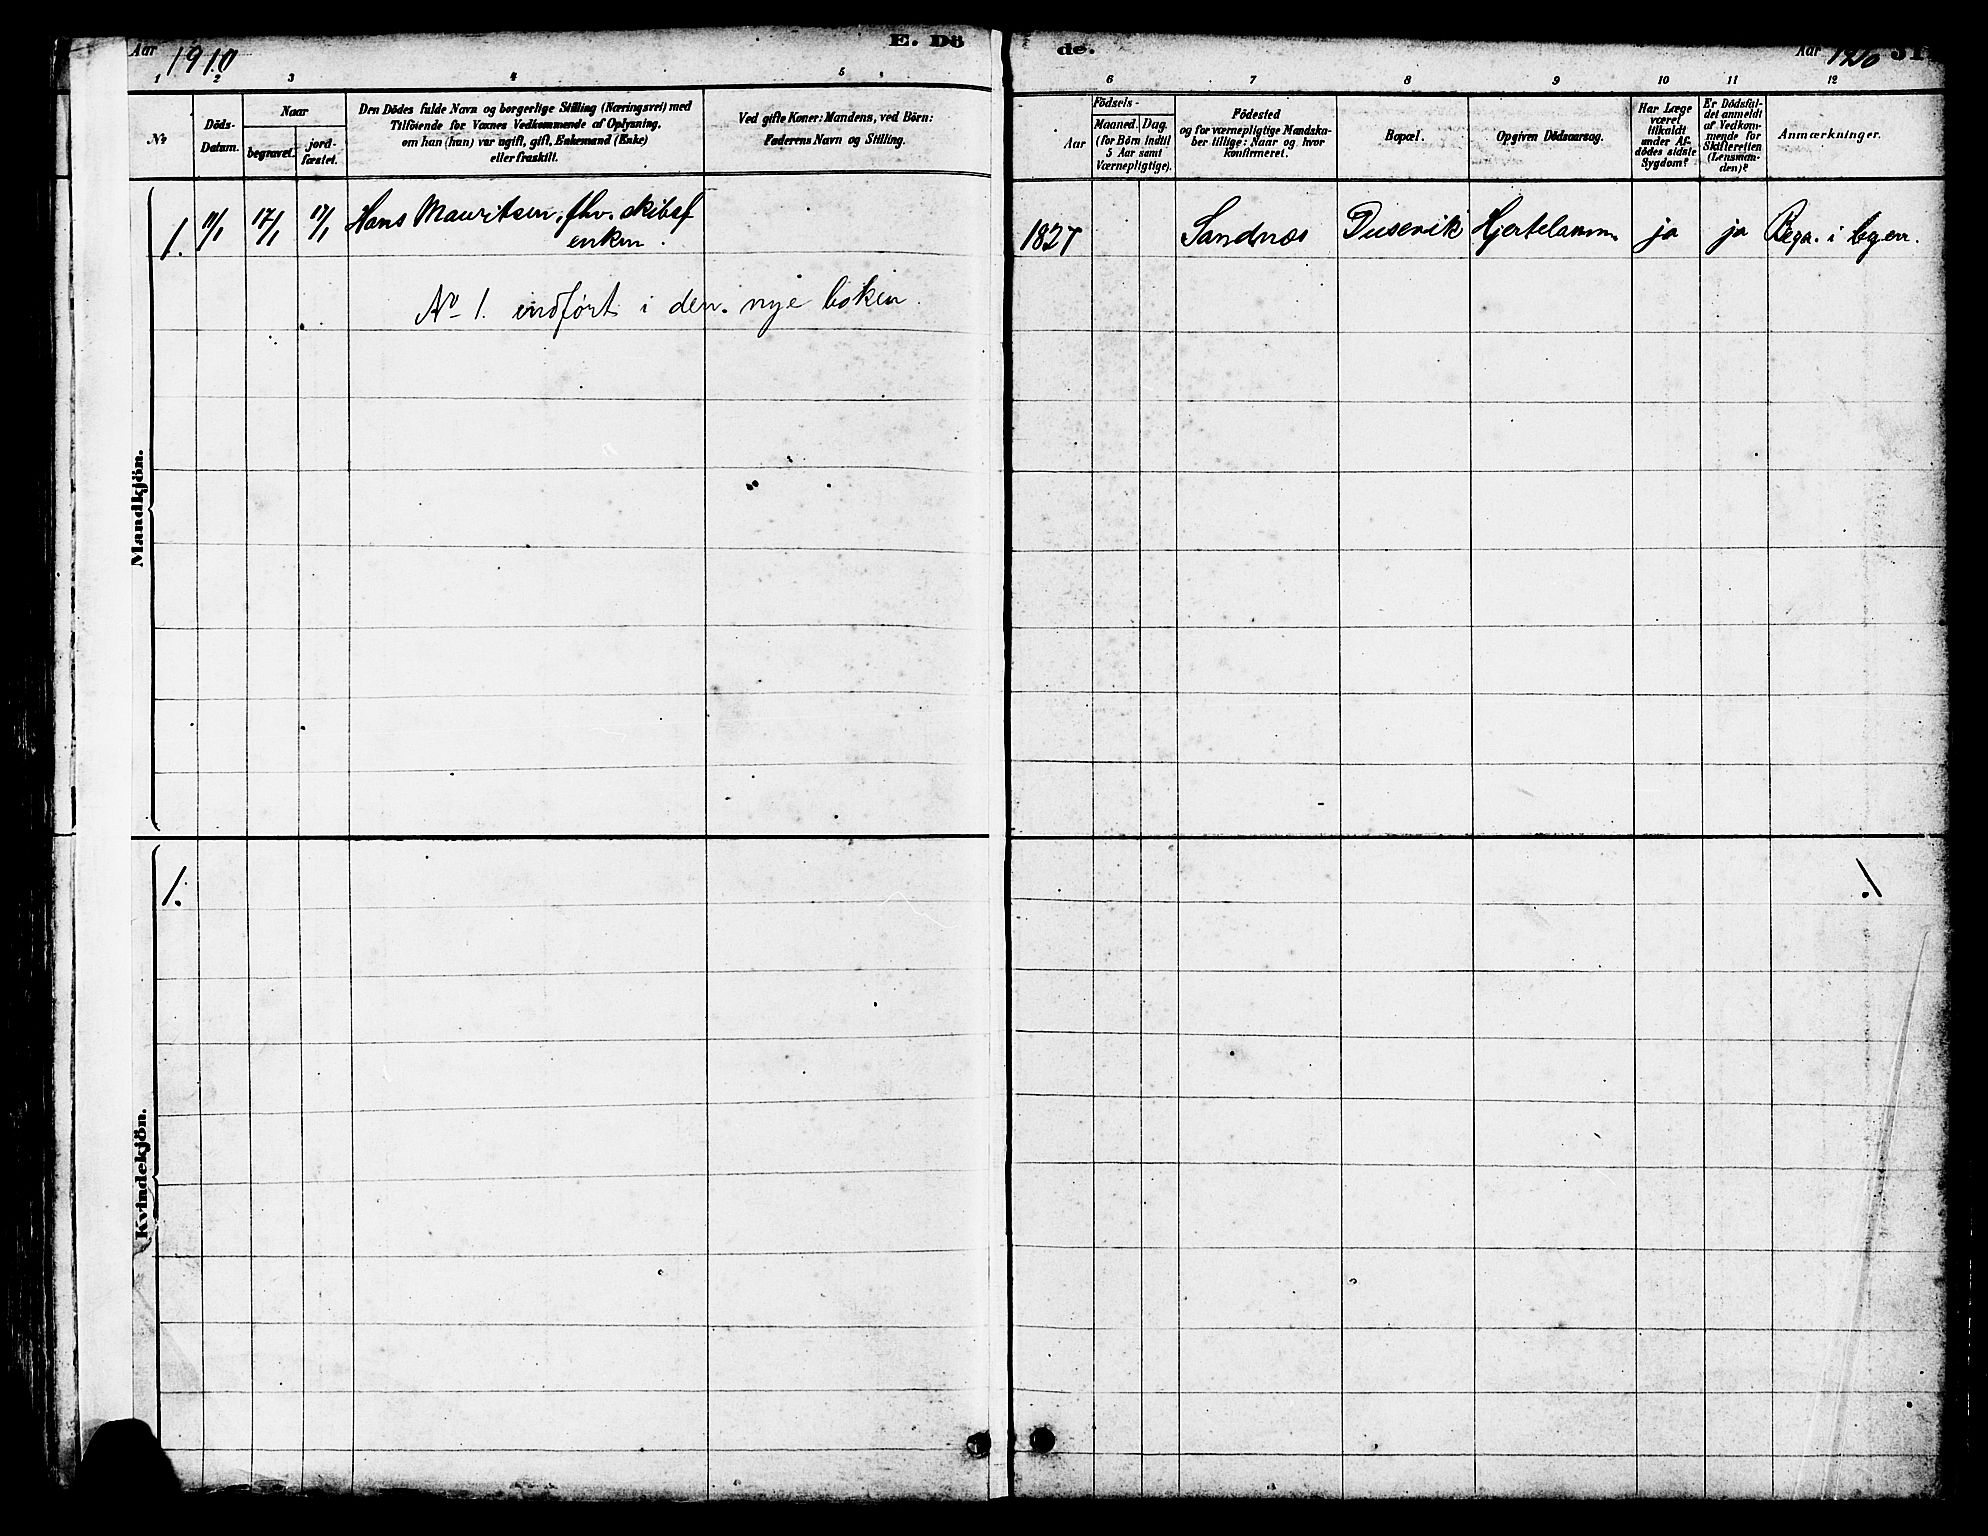 Aar 1910
E. Dö
de.
Aar
1 2 3 4 5
6 7 8 9 10 11 12
№
Döds-
Datum.
Naar
begravet.
jord-
fæstet.
Den Dödes fulde Navn og borgerlige Stilling (Næringsvei) med
Tilföiende for Voxnes Vedkommende af Oplysning,
om han (hun) var ugift, gift, Enkemand (Enke)
eller fraskilt.
Ved gifte Koner: Mandens, ved Börn:
Faderens Navn og Stilling.
Födsels-
Aar
Maaned. Dag.
(for Börn indtil
5 Aar samt
Værnepligtige).
Födested
og for værnepligtige Mandska-
ber tillige: Naar og hvor
konfirmeret.
Bopæl.
Opgiven Dödsaarsag.
Har Læge
været
tilkaldt
under Af-
dödes sidste
Sygdom?
Er Dödsfal-
det anmeldt
af Vedkom-
mende for
Skifteretten
(Lensman-
den)?
Anmærkninger.
Mandkjön.
1. 11/1 17/1 17/1 Hans Mauritsen, fhv. skibsf
enkm.
1827 Sandnæs Dusevik Hjertelamm. ja ja i
№ 1. indført i den nye boken.
Kvindekjön.
1.